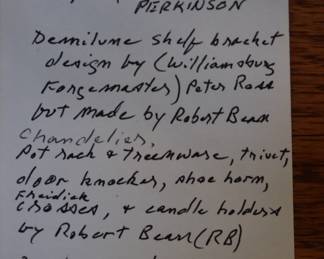 PERKINSON
Demilune shelf bracket
design by (Williamsburg
Forgemaster) Peter Ross
but made by Robert Bean
Chandelier,
Pot rack & treenware, trivet,
door knocker, shoe horn,
crosses, & candle holders
by Robert Bean (RB)